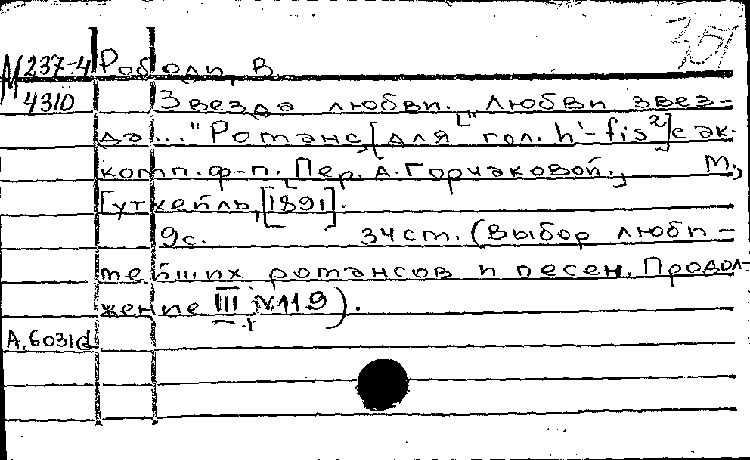 М 237-4 Рободи, В.
4310 Звезда любви. "Любви звез-
да..." Романс, [для гол. h'-fis²] с ак-
комп. ф-п. Пер. А. Горчаковой. М.,
Гуткейль, [1891].
9с. 34см. (Выбор люби-
мейших романсов и песен. Продол-
жение III №119).
А.6031d